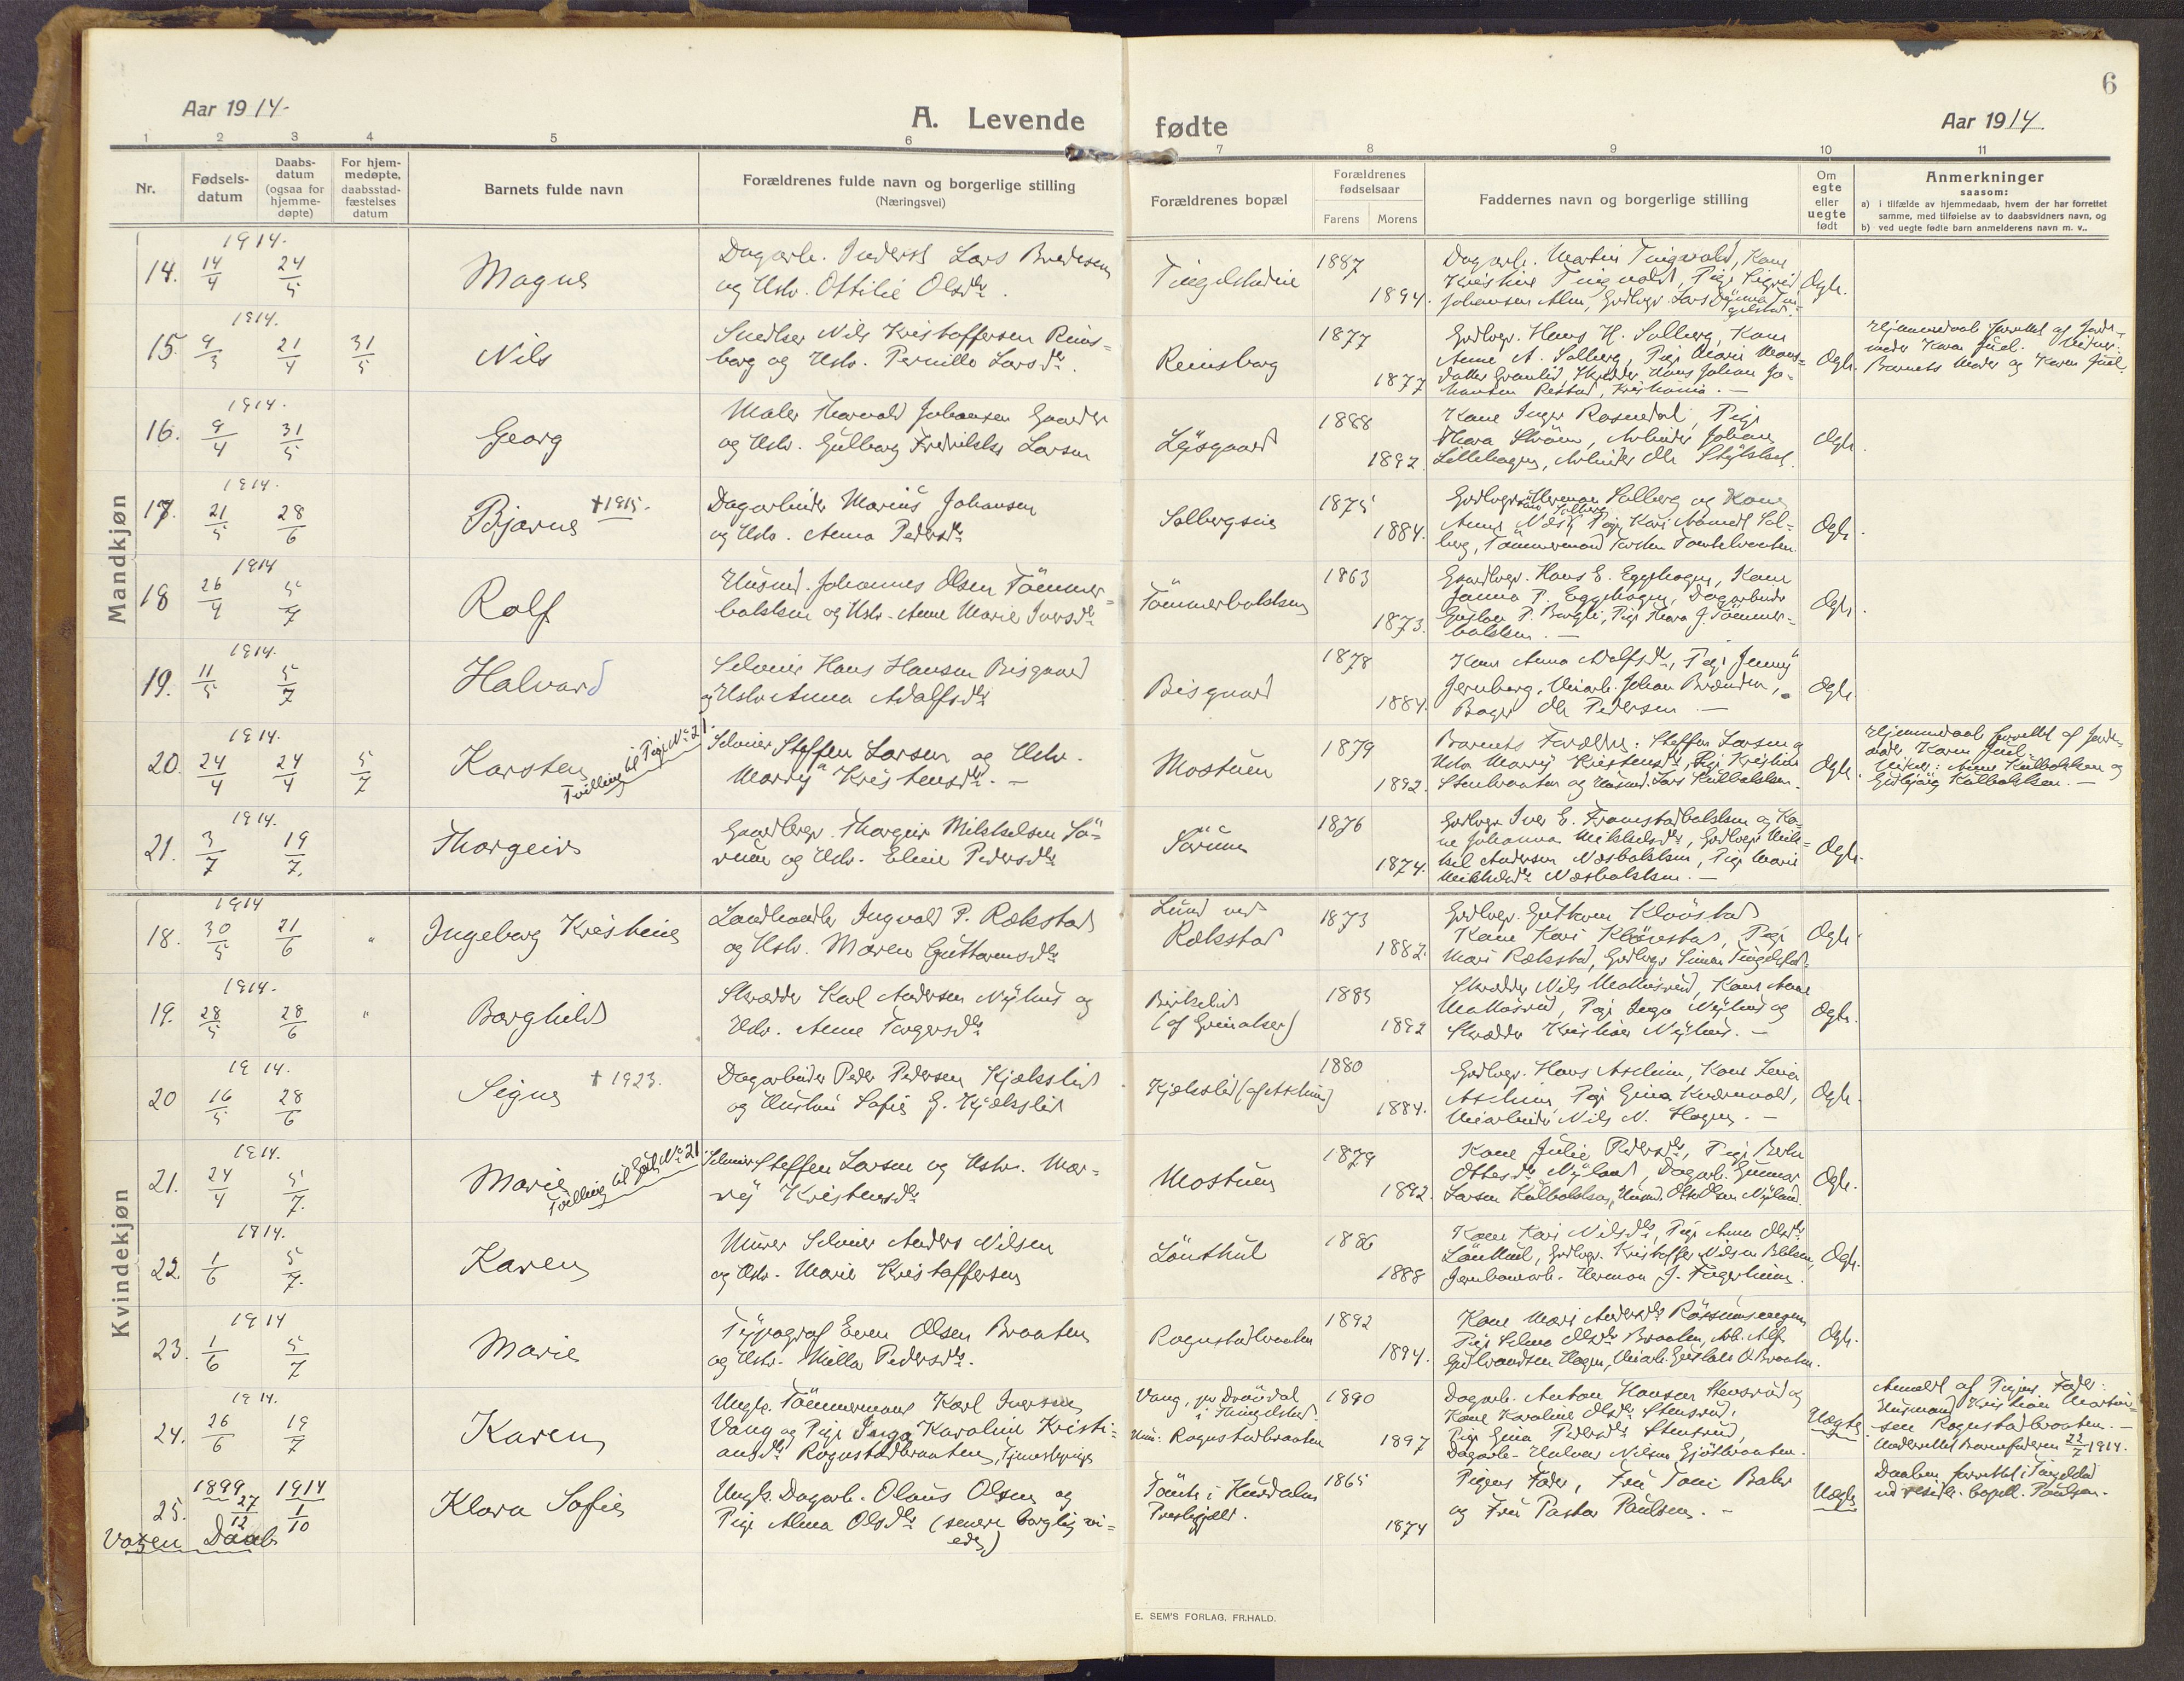 6
Aar 1914
A. Levende fødte
Aar 1914
1 2 3 4 5 6 7 8 9 10 11
Nr.
Fødsels-
datum
Daabs-
datum
(ogsaa for
hjemme-
døpte)
For hjem-
medøpte,
daabsstad-
fæstelses
datum
Barnets fulde navn
Forældrenes fulde navn og borgerlige stilling
(Næringsvei)
Forældrenes bopæl
Forældrenes
fødselsaar
Farens Morens
Faddernes navn og borgerlige stilling
Om
egte
eller
uegte
født
Anmerkninger
saasom:
a) i tilfælde av hjemmedaab, hvem der har forrettet
samme, med tilføielse av to daabsvidners navn, og
b) ved uegte fødte barn anmelderens navn m. v..
Mandkjøn
1914.
14. 14/4 24/5 Magne
Dagarb. Inderst Lars Bredesen
og Hstr. Ottilie Olsdtr.
1887
1894.
Dagarb. Martin Tingvold, Kone
Kristine Tingvold, Pige Sigrid
Ogte.
1914.
15. 9/3 21/4 31/5 Nils
Snedker Nils Kristoffersen Reins=
borg og Hstr. Pernille Larsdtr.
Reinsborg
1877
1877
Gdbgr. Hans H. Solberg, Kone
Anne A. Solberg, Pige Marie Hans=
datter Granlid, Skredder Hans Johan Jo-
hansen Restad, Kristiania. —
Ogte.
Hjemmedaab forrettet af Jorde-
moder Karen Juel. Vidner:
Barnets Moder og Karen Juel.
1914.
16. 9/4 31/5 Georg
Maler Harvald Johansen Gaarder
og Hstr. Gulborg Fredrikke Larsen
1888
1892.
Kone Inger Rosendal, Pige
Thora Strøm, Arbeider Johan
Lillehagen, Arbeider Ole
Ogte.
1914.
17. 21/5 28/6 Bjarne +1915.
Dagarbeider Marius Johansen
og Hstr. Anna Pedersdtr.
Solbergseie
1875
1884.
Solberg og Kone
Pige Kari Sol-
berg, Tömmermand
Ogte.
1914
18 26/4 5/7 Rolf
Husmd. Johannes Olsen Tömmer=
bakken og Hstr. Anne Marie Iversdtr.
Tömmerbakken
1863
1873.
Gaardbgr. Hans E. Eggehagen, Kone
Janna P. Eggehagen, Dagarbeider
Gustav P. Pige Thora J. Tömmer-
bakken. —
Ogte.
1914.
19. 11/5 5/7 Halvard
Selveier Hans Hansen Bisgaard
og Hstr. Anna Adolfsdtr.
Bisgaard
1878
1884.
Kone Anna Adolfsdtr., Pige Jenny
Jernberg, Veiarb. Johan Brænden,
Bager Ole Pedersen. —
Ogte.
1914.
20. 24/4 24/4 5/7 Karsten
Tvilling til Pige No 21.
Selveier Steffen Larsen og Hstr.
Marry Kristensdtr. —
Mostuen
1879
1892.
Barnets Forældre: Steffen Larsen og
Hstr. Marry Kristensdtr., Pige Kristine
Stenbraaten og Husmd. Lars Kulbakken.
Ogte.
Hjemmedaab forrettet af Jorde-
moder Karen Juel.
Vidner: Anne Kulbakken og
Gudbjørg Kulbakken. —
1914.
21. 3/7 19/7. Thorgeir
Gaardbrgr. Thorgeir Mikkelsen Sö-
rum og Hstr. Eline Pedersdtr.
Sörum
1876
1874.
Gdbgr. Iver E. Framstadbakken og Ko-
ne Johanna Mikkelsdtr., Gdbgr. Mik-
kel Andersen Næsbakken, Pige Marie
Mikkelsdtr. Næsbakken. —
Ogte.
Kvindekjøn
1914
18. 30/5 21/6 " Ingeborg Kristine
Landhandler Ingvald P. Rækstad
og Hstr. Maren Guttormsdtr.
Lund ved
Rækstad
1873
1882.
Gdbgr. Guttorm Klövstad
Kone Kari Klövstad, Pige
Mari Rækstad, Gdbgr. Simen Tingelstad.
Ogte.
1914.
19. 28/5 28/6 " Borghild
Skrædder Karl Andersen Nyhus og
Hstr. Anne Torgersdtr.
Birkelid
(af Grinaker)
1885
1892
Skrædder Nils Kone Anne
Pige Inga Nyhus og
Skrædder Kristian Nyhus. —
Ogte.
1914.
20 16/5 28/6 Signe + 1923.
Dagarbeider Peder Pedersen Kjækslid
og Hustru Sofie G. Kjækslid
Kjækslid (af Askim)
1880
1884.
Gdbgr. Hans Askim, Kone Lena
Askim, Pige Gina
Veiarbeider Nils N. Hagen. —
Ogte.
1914.
21. 24/4 5/7. Marie
Tvilling til Gut No 21
Selveier Steffen Larsen og Hstr. Mar-
ry Kristensdtr.
Mostuen
1879
1892.
Kone Julie Pedersdtr., Pige Berte
Ottesdtr. Nyland, Dagarb. Gunnar
Larsen Kulbakken, Husmd. Ole Olsen Nyland.
Ogte.
1914.
22. 1/6 5/7. Karen
Murer Selveier Anders Nilsen
og Hstr. Marie Kristoffersen
Lönthul
1886
1888
Kone Kari Nilsdtr., Pige Anne Olsdtr.
Lönthul, Gdbgr. Kristoffer Nilsen
Jernbanearb. Herman J. Fagerheim.
Ogte.
1914
23. 1/6 5/7 Marie
Typograf Even Olsen Braaten
og Hstr. Milla Pedersdtr.
Rognstadbraaten
1892
1894.
Kone Mari Andersdtr.
Pige Selma Olsdtr. Braaten, Arb. Alf
Gulbrandsen Hagen, Veiarb. Gustav O. Braaten.
Ogte.
1914.
24. 26/6 19/7 Karen
Ungk. Tömmermand Karl Iversen
Vang og Pige Inga Karoline Kristi-
ansdtr. Rognstadbraaten, Tjenestepige
Vang, pr. Drövdal
i Thingelstad.
Hun: Rognstadbraaten
1890
1897
Dagarb. Anton Hansen Stensrud og
Kone Karoline Olsdtr. Stensrud,
Pige Gina Pedersdtr. Stensrud,
Dagarb. Halvor Nilsen Gjötbraaten.
Uegte
Anmeldt af Pigens Fader:
Husmand Kristian Martin-
sen Rognstadbraaten. —
Underrettet Barnefaderen 22/7 1914.
1899 1914
25. 27/12 1/10 Klara Sofie
Voxen Daab
Ungk. Dagarb. Olaus Olsen og
Pige Alma Olsdtr. (senere borglig vi-
ede)
Tömte i Hurdalen
Prestegjeld.
1865
1874
Pigens Fader, Fru Toni Bahr
og Fru Pastor Paulsen. —
Uegte
Daaben forrettet i Tingelstad
ved resid. kapell. Paulsen.
E. SEM'S FORLAG. FR.HALD.